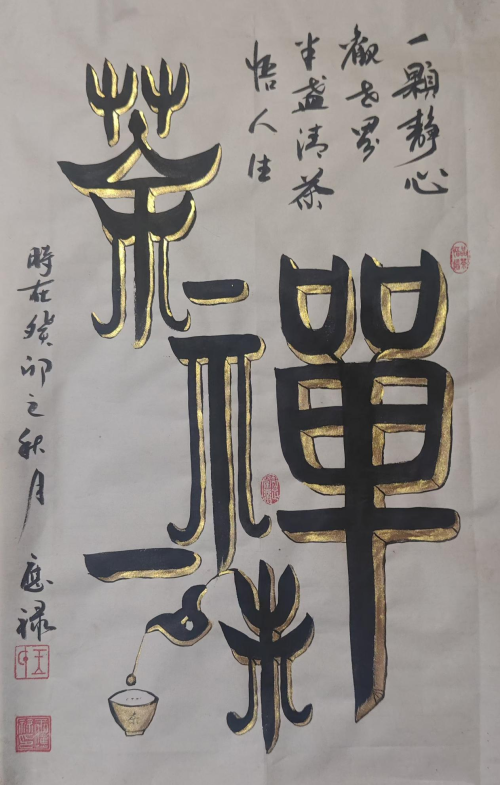 一顆靜心
觀世界
半盞清茶
悟人生
茶禪一味
時在癸卯之秋月
應祿